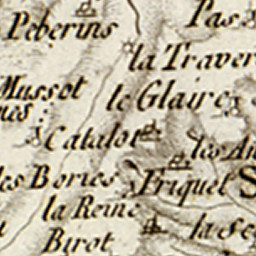 Peberins
Pas
la Traver
Mussot
le Glaire
Catalot
les An
les Bories
Friquet S
la Reine
la Se
Birot